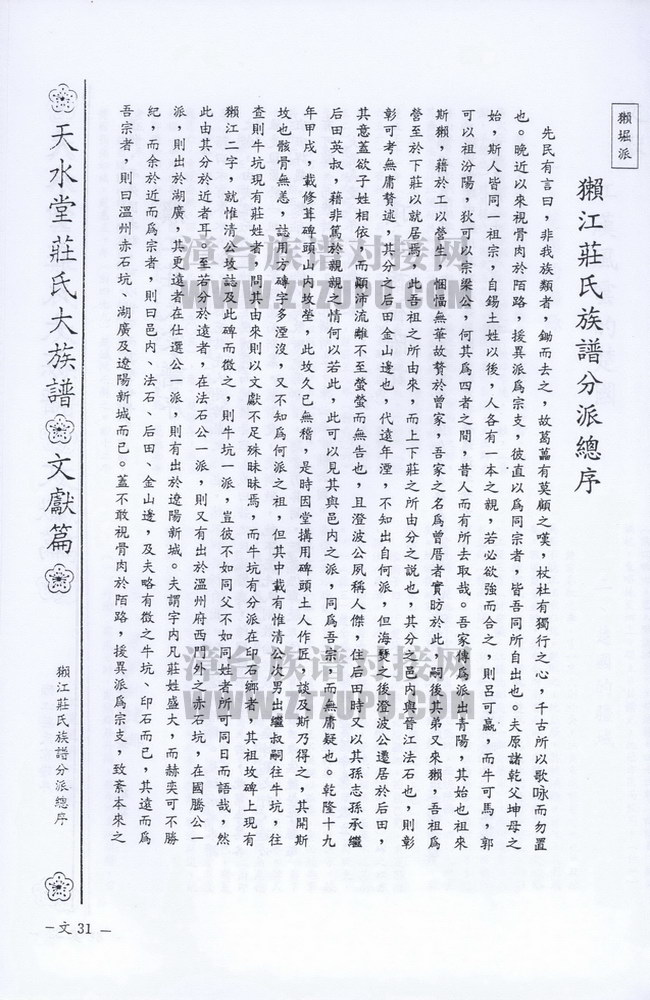 獺堀派
獺江莊氏族譜分派總序
先民有言曰，非我族類者，鋤而去之，故葛藟有莫顧之嘆，杖杜有獨行之心，千古所以歌咏而勿置
也。晚近以來視骨肉於陌路，援異派為宗支，彼直以為同宗者，皆吾同所自出也。夫原諸乾父坤母之
始，斯人皆同一祖宗，自錫土姓以後，人各有一本之親，若必欲強而合之，則呂可嬴，而牛可馬，郭
可以祖汾陽，狄可以宗梁公，何其為四者之間，昔人而有所去取哉。吾家傳為派出青陽，其始也祖來
斯獺，藉於工以營生，悃愊無華故贅於曾家，吾家之名為曾厝者實昉於此，嗣後其弟又來獺，吾祖為
營至於下莊以就居焉，此吾祖之所由來，而上下莊之所由分之說也，其分之邑內與晉江法石也，則彰
彰可考無庸贅述，其分之后田金山邊也，代遠年湮，不知出自何派，但海氛之後澄波公遷居於后田，
其意蓋欲子姓相依，而顛沛流離不至煢煢而無告也，且澄波公夙稱人傑，住后田時又以其孫志孫承繼
后田英叔，藉非篤於親親之情何以若此，此可以見其與邑內之派，同為吾宗，而無庸疑也。乾隆十九
年甲戌，載修葺碑頭山內坟塋，此坟久已無稽，是時因堂搆用碑頭土人作匠，談及斯乃得之，其開斯
坟也骸骨無恙，誌用方磚字多湮沒，又不知為何派之祖，但其中載有惟清公次男出繼叔嗣往牛坑，往
查則牛坑現有莊姓者，問其由來則以文獻不足殊昧昧焉，而牛坑有分派在印石鄉者，其祖坟碑上現有
獺江二字，就惟清公坟誌及此碑而徵之，則牛坑一派，豈彼不如同父不如同姓者所可同日而語哉，然
此由其分於近者耳。至若分於遠者，在法石公一派，則又有出於溫州府西門外之赤石坑，在國騰公一
派，則出於湖廣，其更遠者在仕選公一派，則有出於遼陽新城。夫謂宇內凡莊姓盛大，而赫奕可不勝
紀，而余於近而為宗者，則曰邑內、法石、后田、金山邊，及夫略有徵之牛坑、印石而已，其遠而為
吾宗者，則曰溫州赤石坑、湖廣及遼陽新城而已。蓋不敢視骨肉於陌路，援異派為宗支，致紊本來之
天水堂 莊氏大族譜 文獻篇
獺江莊氏族譜分派總序
－文31－
漳台族谱对接网
WWW.ZTZUPU.COM
漳台族谱对接网
WWW.ZTZUPU.COM